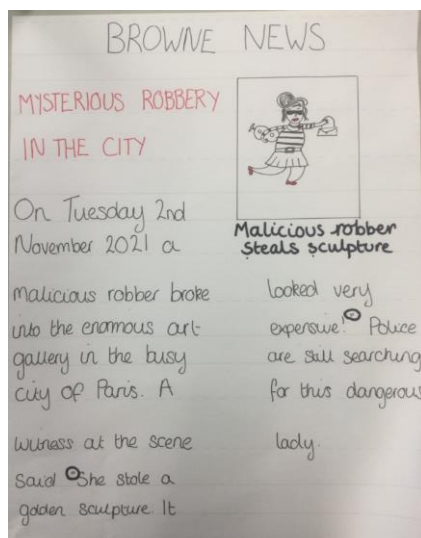 BROWNE NEWS
MYSTERIOUS ROBBERY
IN THE CITY
On Tuesday 2nd
November 2021 a
malicious robber broke
into the enamous art
gallery in the busy
city of Paris. A
witness at the scene
said "She stole a
golden sculpture It
Malicious robber
steals sculpture
looked very
expensive!" Police
are still searching
for this dangerous
lady.